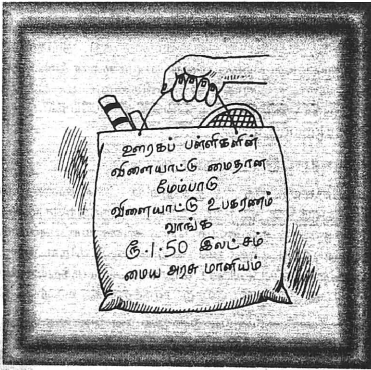 ஊரகப் பள்ளிகளின்
விளையாட்டு மைதான
மேம்பாடு
விளையாட்டு உபகரணம்
வாங்க
ரூ.1.50 இலட்சம்
மைய அரசு மானியம்